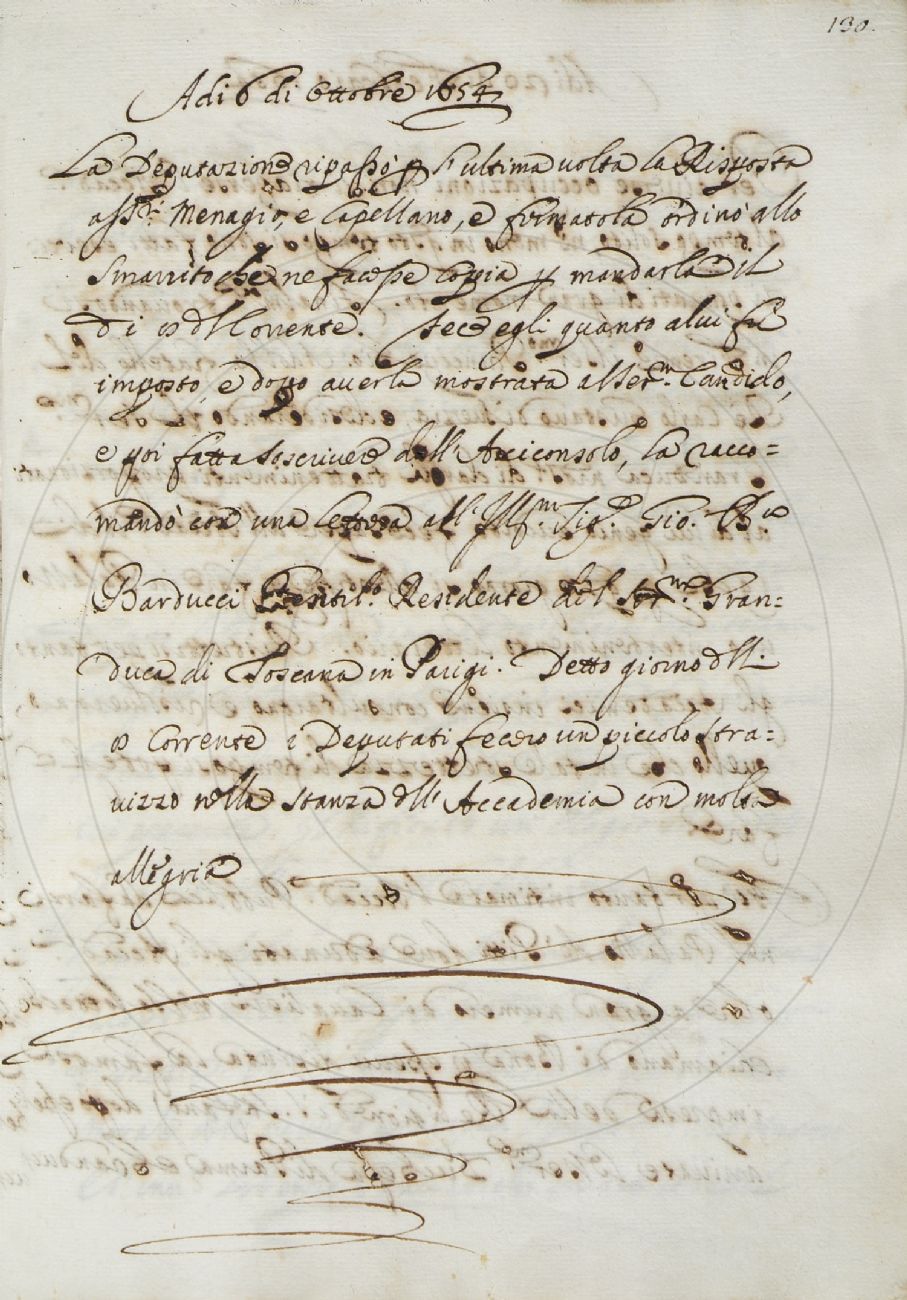 130.
Adi 6 di Ottobre 1654
La Deputazione ripassò p l'ultima volta la Risposta
a SS.ri Menagio, e Capellano, e fermatola ordinò allo
Smarrito che ne facesse copia p mandarla il
di 8 del Corrente. Fece egli quanto a lui fu
imposto, e dopo averla mostrata al Candido,
e poi fatta soscrivere dall' Arciconsolo, la racco=
mandò con una lettera all' Ill.mo Sig.re Gio. Bta
Barducci Gentil.o Residente del Ser.mo Gran=
duca di Toscana in Parigi. Detto giorno dell.
8 Corrente i Deputati fecero un piccolo stra=
vizzo nella stanza dell' Accademia con molta
allegria